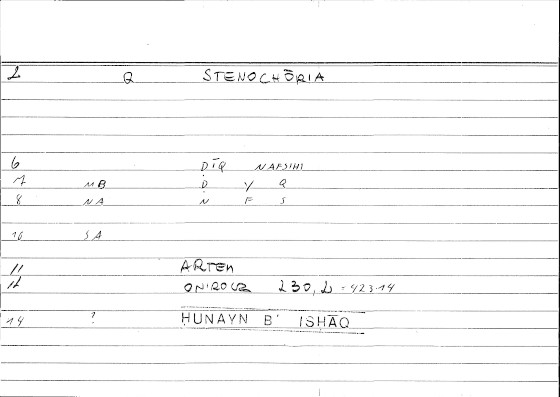 2 Q STENOCHŌRIA
6 ḌĪQ NAFSIHI
7 MB Ḍ Y Q
8 NA N F S
10 SA
11 ARTEM
12 ONIROCR 230,2 = 423.14
14 ? ḤUNAYN B' ISḤĀQ